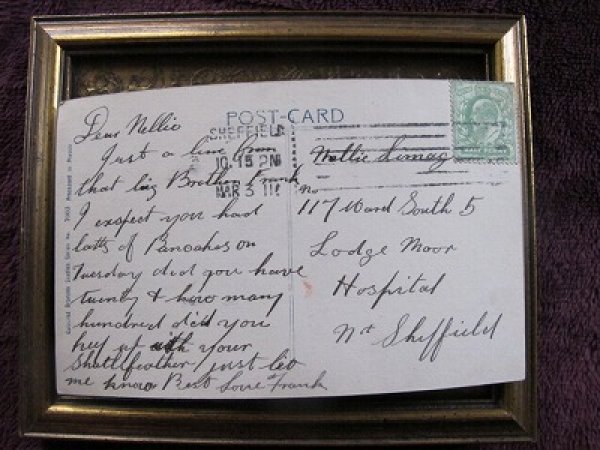 POST-CARD
SHEFFIELD
10.15 PM
MAR 3 11
Dear Nellie
Just a line from
that big Brother Frank
I expect you had
lotts of Pancakes on
Tuesday did you have
twenty & how many
hundred did you
hey up with your
just let
me know Best Love Frank
Nellie
No
117 Ward South 5
Lodge Moor
Hospital
Nr Sheffield